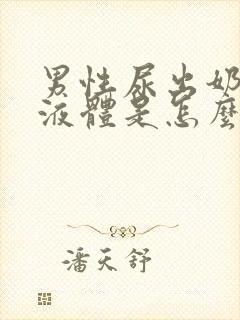 男性尿出奶
液體是怎麼
潘天舒